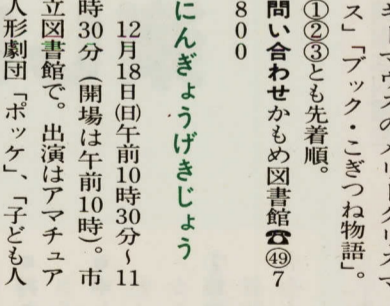 ス」「ブック・こぎつね物語」。
①②③とも先着順。
問い合わせかもめ図書館☎㊾7
800
にんぎょうげきじょう
12月18日㈰午前10時30分〜11
時30分（開場は午前10時）。市
立図書館で。出演はアマチュア
人形劇団「ポッケ」、「子ども人